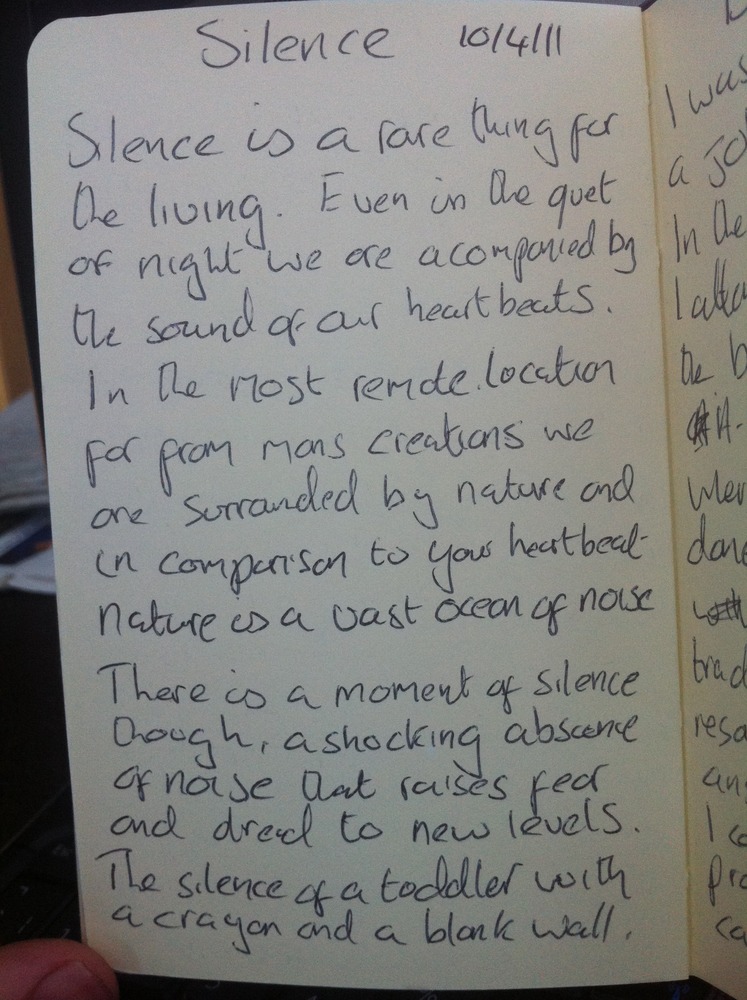 Silence 10/4/11
Silence is a rare thing for
the living. Even in the quet
of night we are acompanied by
the sound of our heartbeats.
In the most remote location
far from mans creations we
are surranded by nature and
in comparison to your heartbeat
nature is a vast ocean of noise
There is a moment of silence
though, a shocking abscence
of noise that raises fear
and dread to new levels.
The silence of a toddler with
a crayon and a blank wall.
I was
a
In the
the